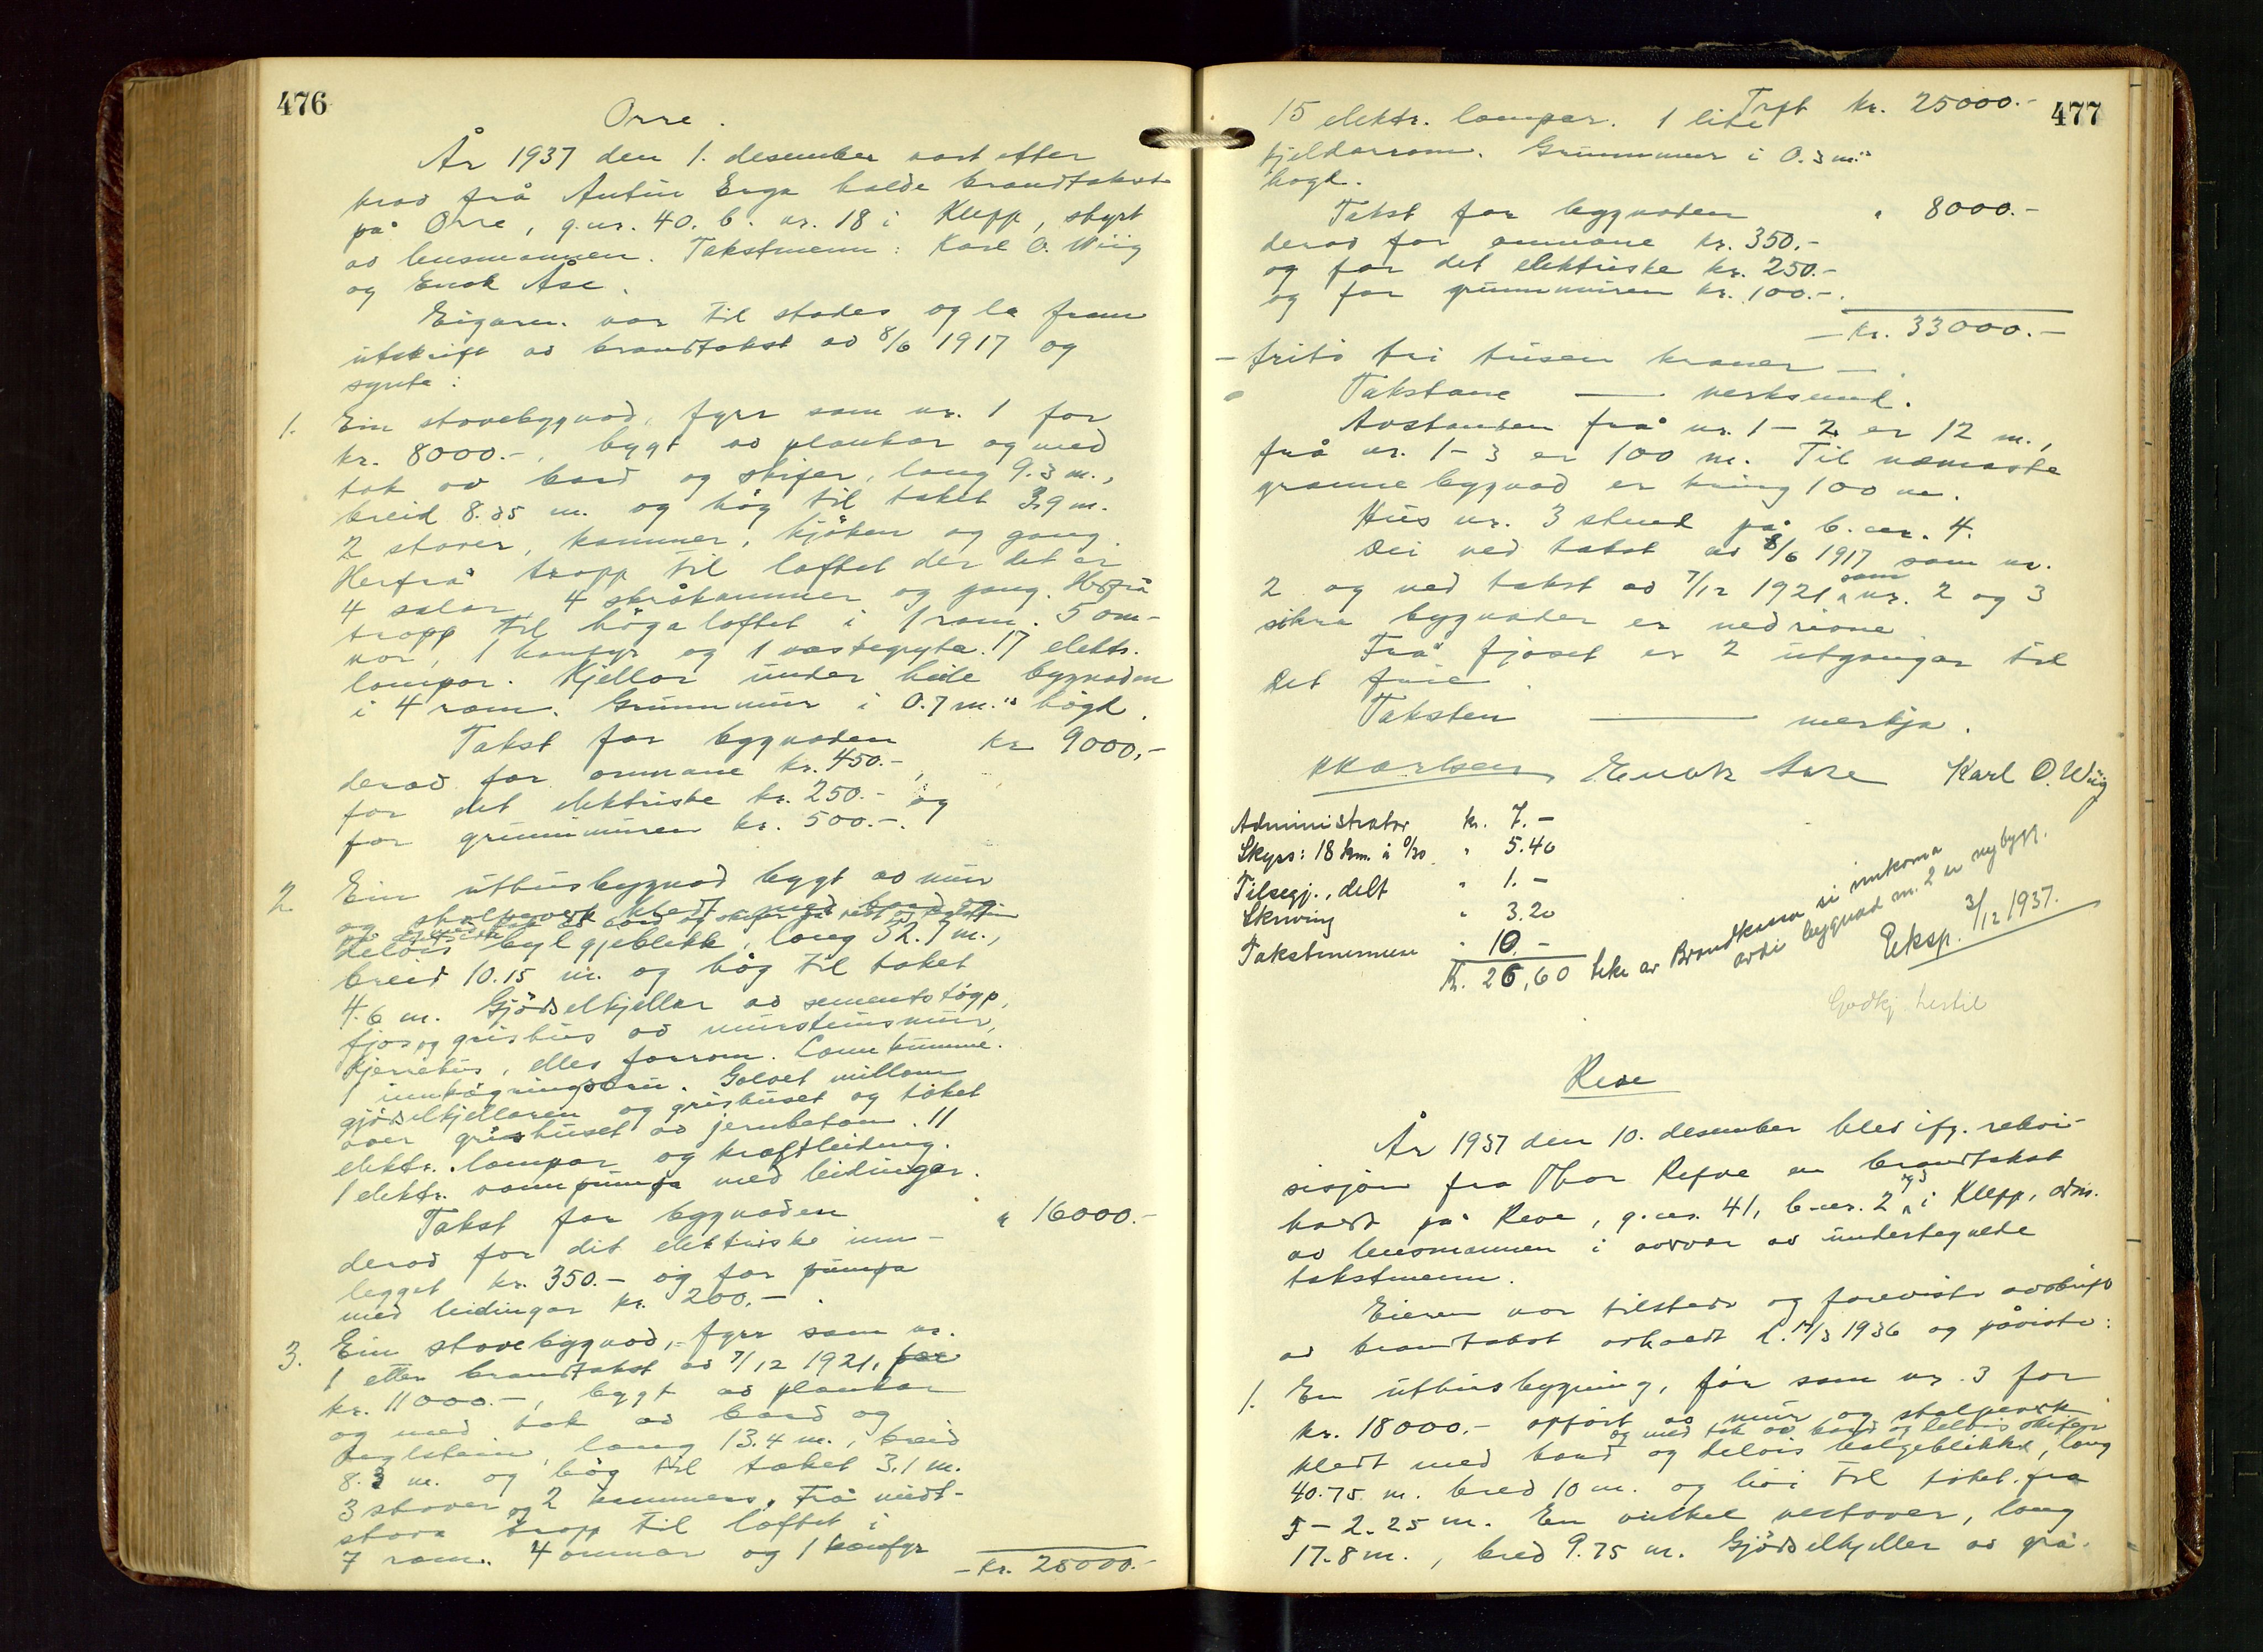 476
Orre.
År 1937 den 1. desember vart etter
krav frå Antin Erga halde brandtakst
på Orre, g.nr. 40. b. nr. 18 i Klepp, styrt
av lensmannen. Takstmenn: Karl O. Wiig
og Enok Åse.
Eigaren var til stades og la fram
utskrift av brandtakst av 8/6 1917 og
synte:
1. Ein stovebygnad, fyrr som nr. 1 for
kr. 8000.-, bygt av plankar og med
tak av bord og skifer, lang 9.3 m.,
breid 8.35 m. og høg til taket 3.9 m.
2 stover, kammer, kjøken og gang.
Herfrå tropp til loftet der det er
4 salar, 4 skråkammer og gang. Herfrå
tropp til høgaloftet i 1 rom. 5 om-
nar, 1 komfyr og 1 vaskegryta. 17 elektr.
lampor. Kjellar under heile bygnaden
i 4 rom. Grunnmur i 0.7 m.s høgd.
Takst for bygnaden kr 9000,-
derav for omnane kr. 450.-,
for det elektriske kr. 250.- og
for grunnmuren kr. 500.-.
2. Ein uthusbygnad bygt av mur
og stolpeverk kledt med bord og
delvis bylgjeblikk, lang 32.7 m.,
breid 10.15 m. og høg til taket
4.6 m. Gjødselkjellar av sementstøyp,
fjos og grishus av mursteinsmur,
kjerrehus, elles forrom. Lannkumme.
1 innkøyringsbru. Golvet millom
gjødselkjellaren og grishuset og taket
over grishuset av jernbetong. 11
elektr. lampor og kraftleidning.
1 elektr. vannpumpa med leidingar.
Takst for bygnaden " 16000.-
derav for dit elektriske inn-
legget kr. 350.- og for pumpa
med leidingar kr. 200.-.
3. Ein stovebygnad, fyrr som nr.
1 etter brandtakst av 7/12 1921, for
kr. 11000.-, bygt av plankar
og med tak av bord og
teglstein, lang 13.4 m., breid
8.3 m. og høg til taket 3.1 m.
3 stover og 2 kammers. Frå midt-
stova tropp til loftet i
7 rom. 4 omnar og 1 komfyr
- Kr. 25000.-
477
Trft kr. 25000.-
15 elektr. lampor. 1 lite
kjeldarrom. Grunnmur i 0.3 m.s
høgd.
Takst for bygnaden " 8000.-
derav for omnane kr. 350.-
og for det elektriske kr. 250.-
og for grunnmuren kr. 100.-.
- Kr. 33000.-
- tritio tri tusen kroner -.
Takstane — verksemd.
Avstanden frå nr. 1 - 2 er 12 m.,
frå nr. 1 - 3 er 100 m. Til næmaste
grannebygnad er kring 100 m.
Hus nr. 3 stend på b.nr. 4.
Dei ved takst av 8/6 1917 som nr.
2 og ved takst av 7/12 1921 som nr. 2 og 3
sikra bygnader er nedrivne
Frå fjøset er 2 utgangar til
det frie.
Taksten — merkja.
KKarlsen Enok Åse Karl O. Wiig
Administrator kr. 7.-
Skyss: 18 km. à 0/30 " 5.40
Tilsegj., delt " 1.-
Skriving " 3.20
Takstmennene " 10.-
Kr. 26,60 teke av Brandkassa si innkoma
avdi bygnad nr. 2 er nybygt.
Eksp. 3/12 1937.
Godkj. hertil
Reve
År 1937 den 10. desember blev ifg. rekvi-
sisjon fra Thor Refve en brandtakst
havd på Reve, g.nr. 41, b.nr. 2 og 3 i Klepp, adm.
av lensmannen i nærvær av undertegnede
takstmenn.
Eieren var tilstede og foreviste avskrift
av brandtakst avholdt d. 17/3 1936 og påviste:
1. En uthusbygning, før som nr. 3 for
kr. 18000.- opført av mur og stolpeverk
og med tak av bord og delvis skifer
kledt med bord og delvis bølgeblikk, lang
40.75 m. bred 10 m. og høi til taket fra
5 - 2.25 m. En vinkel vestover, lang
17.8 m., bred 9.75 m. Gjødselkjeller av grå-